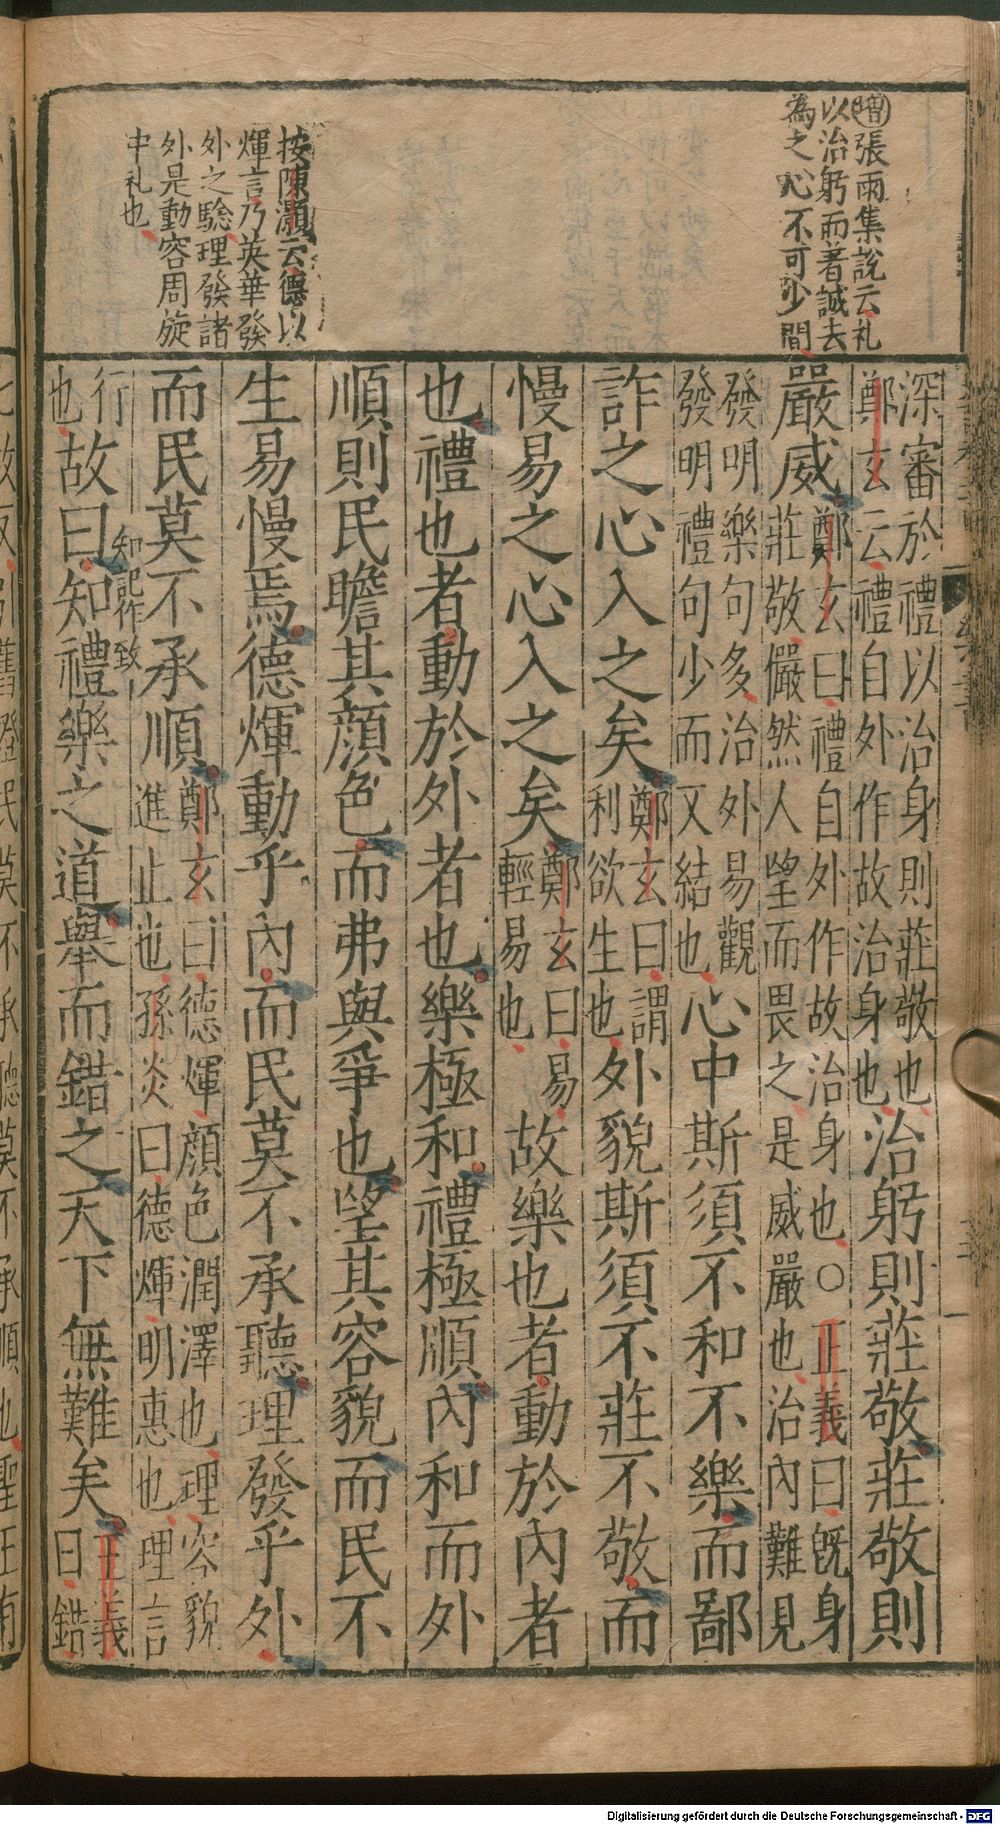 增張雨集說云礼
以治躬而著誠去
為之心不可少間
按陳灝云德以
煇言乃英華發
外之驗理發諸
外是動容周旋
中礼也
深審於禮以治身則莊敬也
鄭玄云禮自外作故治身也
治躬則莊敬莊敬則
嚴威
鄭玄曰禮自外作故治身也○正義曰旣身
莊敬儼然人望而畏之是威嚴也治內難見
發明樂句多治外易觀
發明禮句少而又結也
心中斯須不和不樂而鄙
詐之心入之矣
鄭玄曰謂
利欲生也
外貌斯須不莊不敬而
慢易之心入之矣
鄭玄曰易
輕易也
故樂也者動於內者
也禮也者動於外者也樂極和禮極順內和而外
順則民瞻其顏色而弗與爭也望其容貌而民不
生易慢焉德煇動乎內而民莫不承聽理發乎外
而民莫不承順
鄭玄曰德煇顏色潤澤也理容貌
進止也孫炎曰德煇明惠也理言
行
也
故曰知禮樂之道舉而錯之天下無難矣
正義
曰錯
知記作致
Digitalisierung gefördert durch die Deutsche Forschungsgemeinschaft - DFG